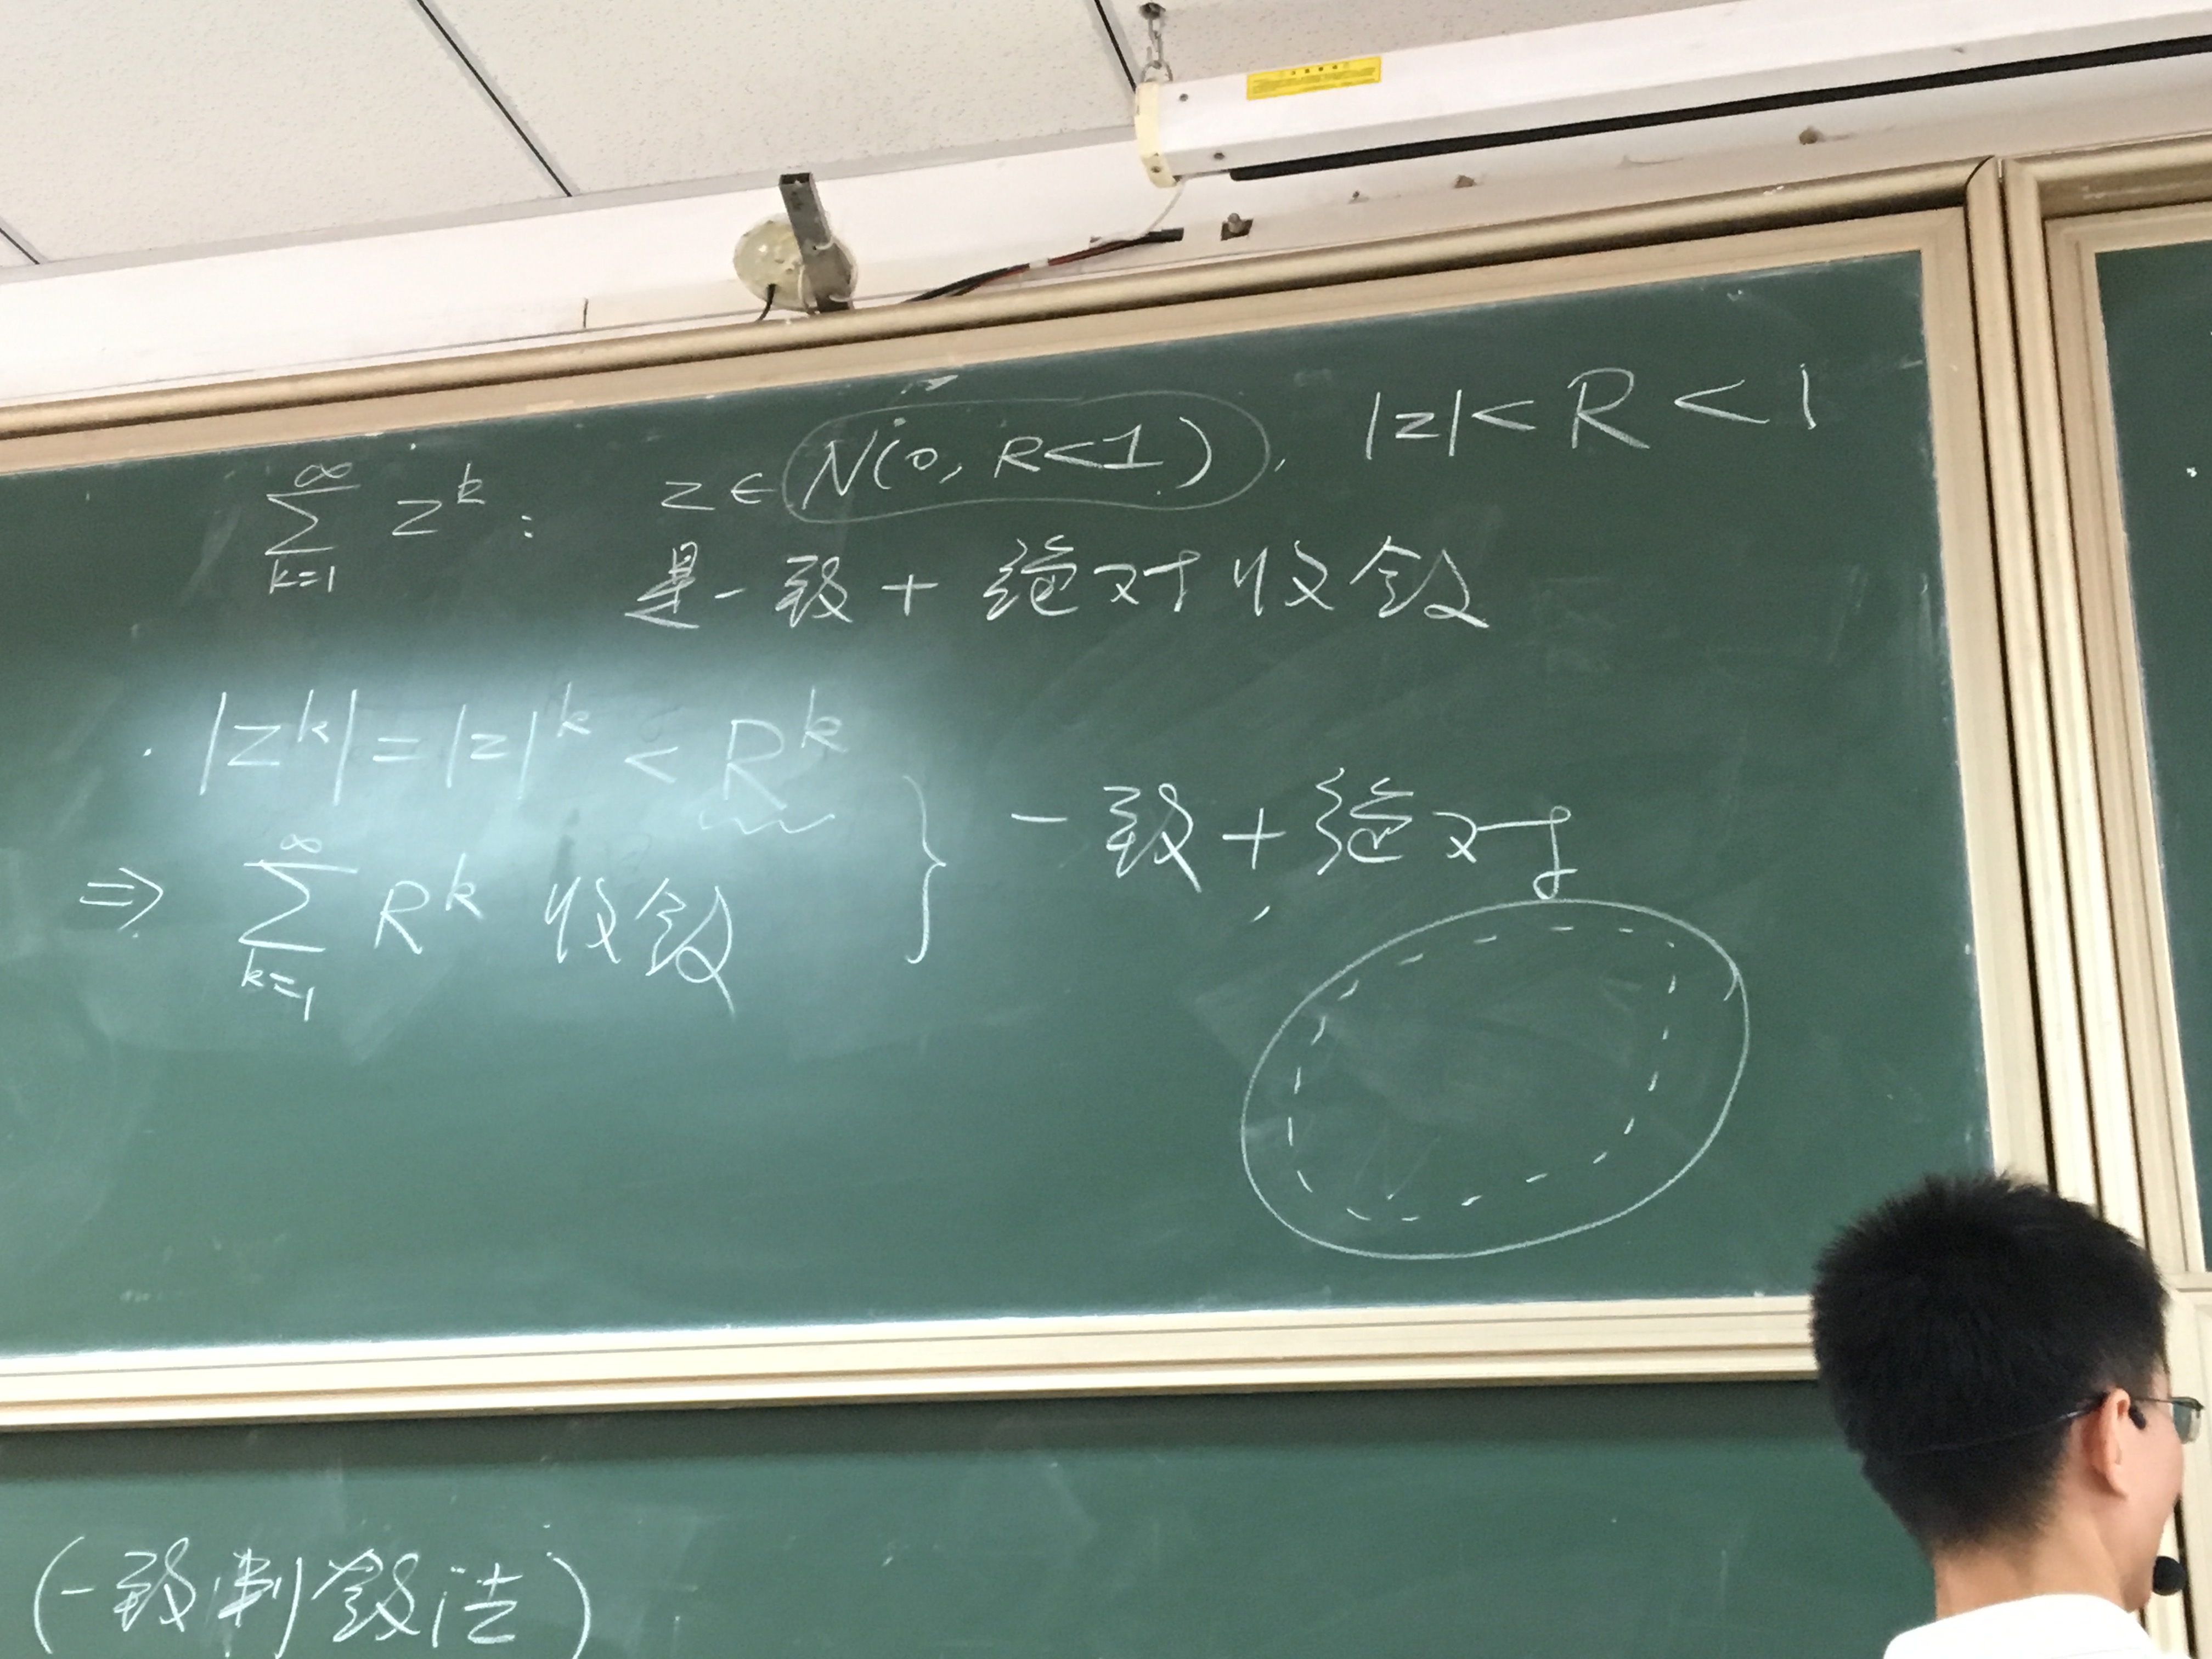 ∑_{k=1}^{∞} z^k : z∈N(0, R<1), |z|<R<1
是一致+绝对收敛
|z^k|=|z|^k < R^k
⇒ ∑_{k=1}^{∞} R^k 收敛 } 一致+绝对
(一致判敛法)